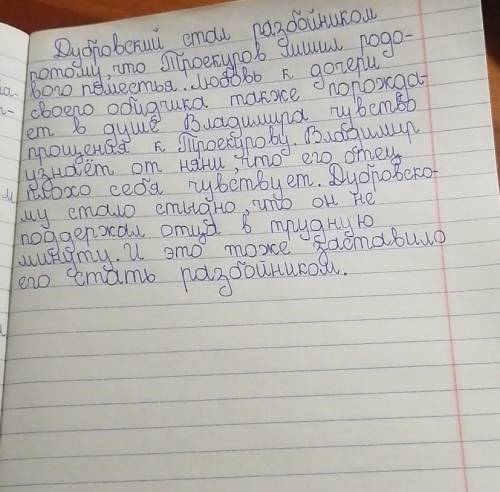 Дубровский стал разбойником
потому, что Троекуров лишил родо-
вого поместья. Любовь к дочери
своего обидчика также порожда-
ет в душе Владимира чувство
прощения к Троекурову. Владимир
узнаёт от няни, что его отец
плохо себя чувствует. Дубровско-
му стало стыдно, что он не
поддержал отца в трудную
минуту. И это тоже заставило
его стать разбойником.